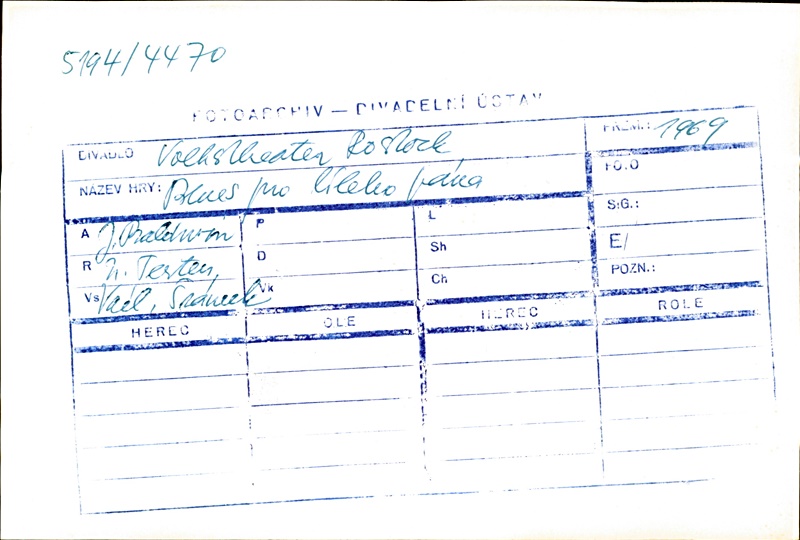 5194/4470
FOTOARCHIV — DIVADELNÍ ÚSTAV
DIVADLO Volkstheater Rostock
PREM.: 1969
NÁZEV HRY: Blues pro bílého pána
FO.O
S:G.:
E/
POZN.:
A J. Baldwin P L
R D Sh
Vs Vk Ch
HEREC OLE HEREC ROLE